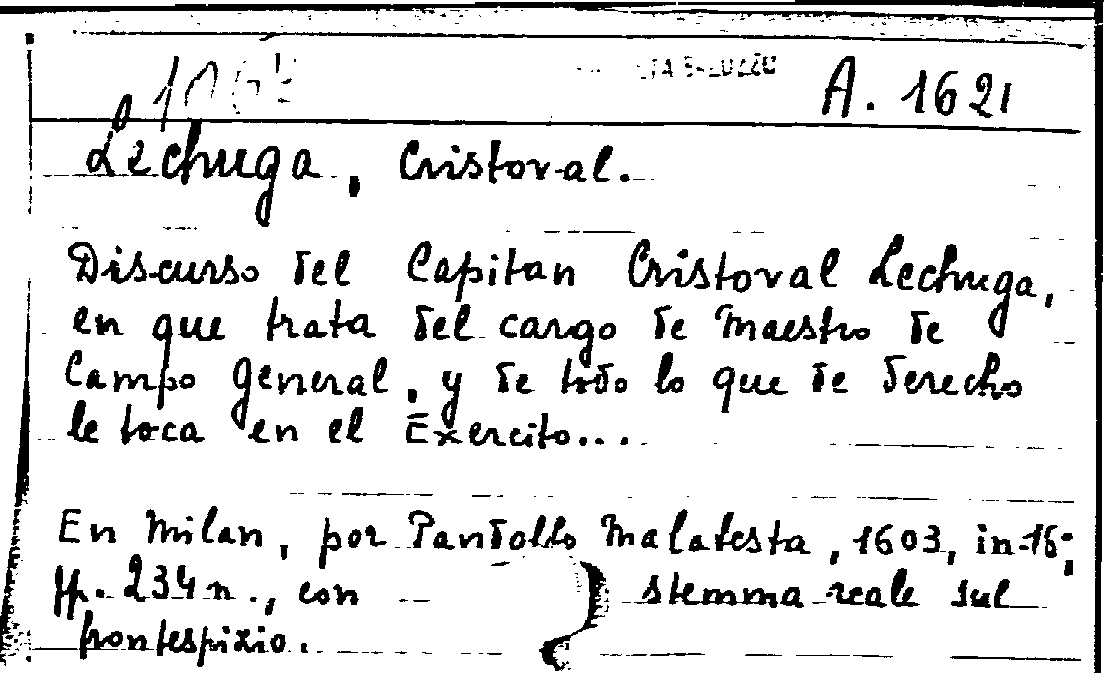 A. 1621
Lechuga, Cristoval.
Discurso del Capitan Cristoval Lechuga,
en que trata del cargo de Maestro de
Campo General, y de todo lo que de derecho
le toca en el Exercito...
En Milan, por Pandolfo Malatesta, 1603, in-16°,
pp. 234 n., con stemma reale sul
frontespizio.